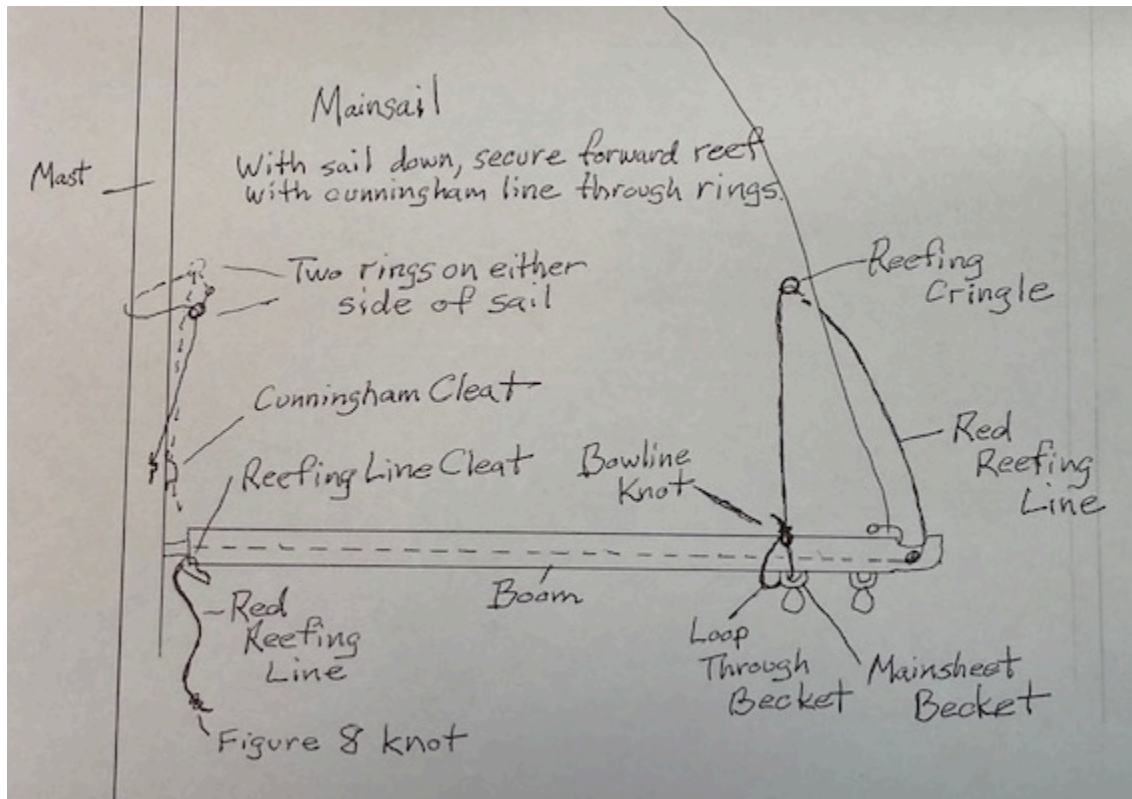 Mainsail
With sail down, secure forward reef
with cunningham line through rings.
Mast
Two rings on either
side of sail
Reefing
Cringle
Cunningham Cleat
Reefing Line Cleat
Bowline
Knot
Red
Reefing
Line
Boom
Red
Reefing
Line
Loop
Through
Becket
Mainsheet
Becket
Figure 8 knot